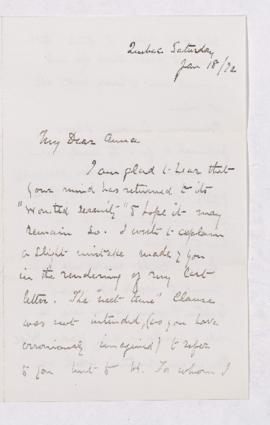 Quebec Saturday
Jan 18/72
My Dear Anna
I am glad to hear that
your mind has returned to its
"wonted serenity" & hope it may
remain so. I write to explain
a slight mistake made by you
in the rendering of my last
letter. The "next time" Clause
was not intended, (as you have
erroniously imagined) to refer
to you but to M. For whom I